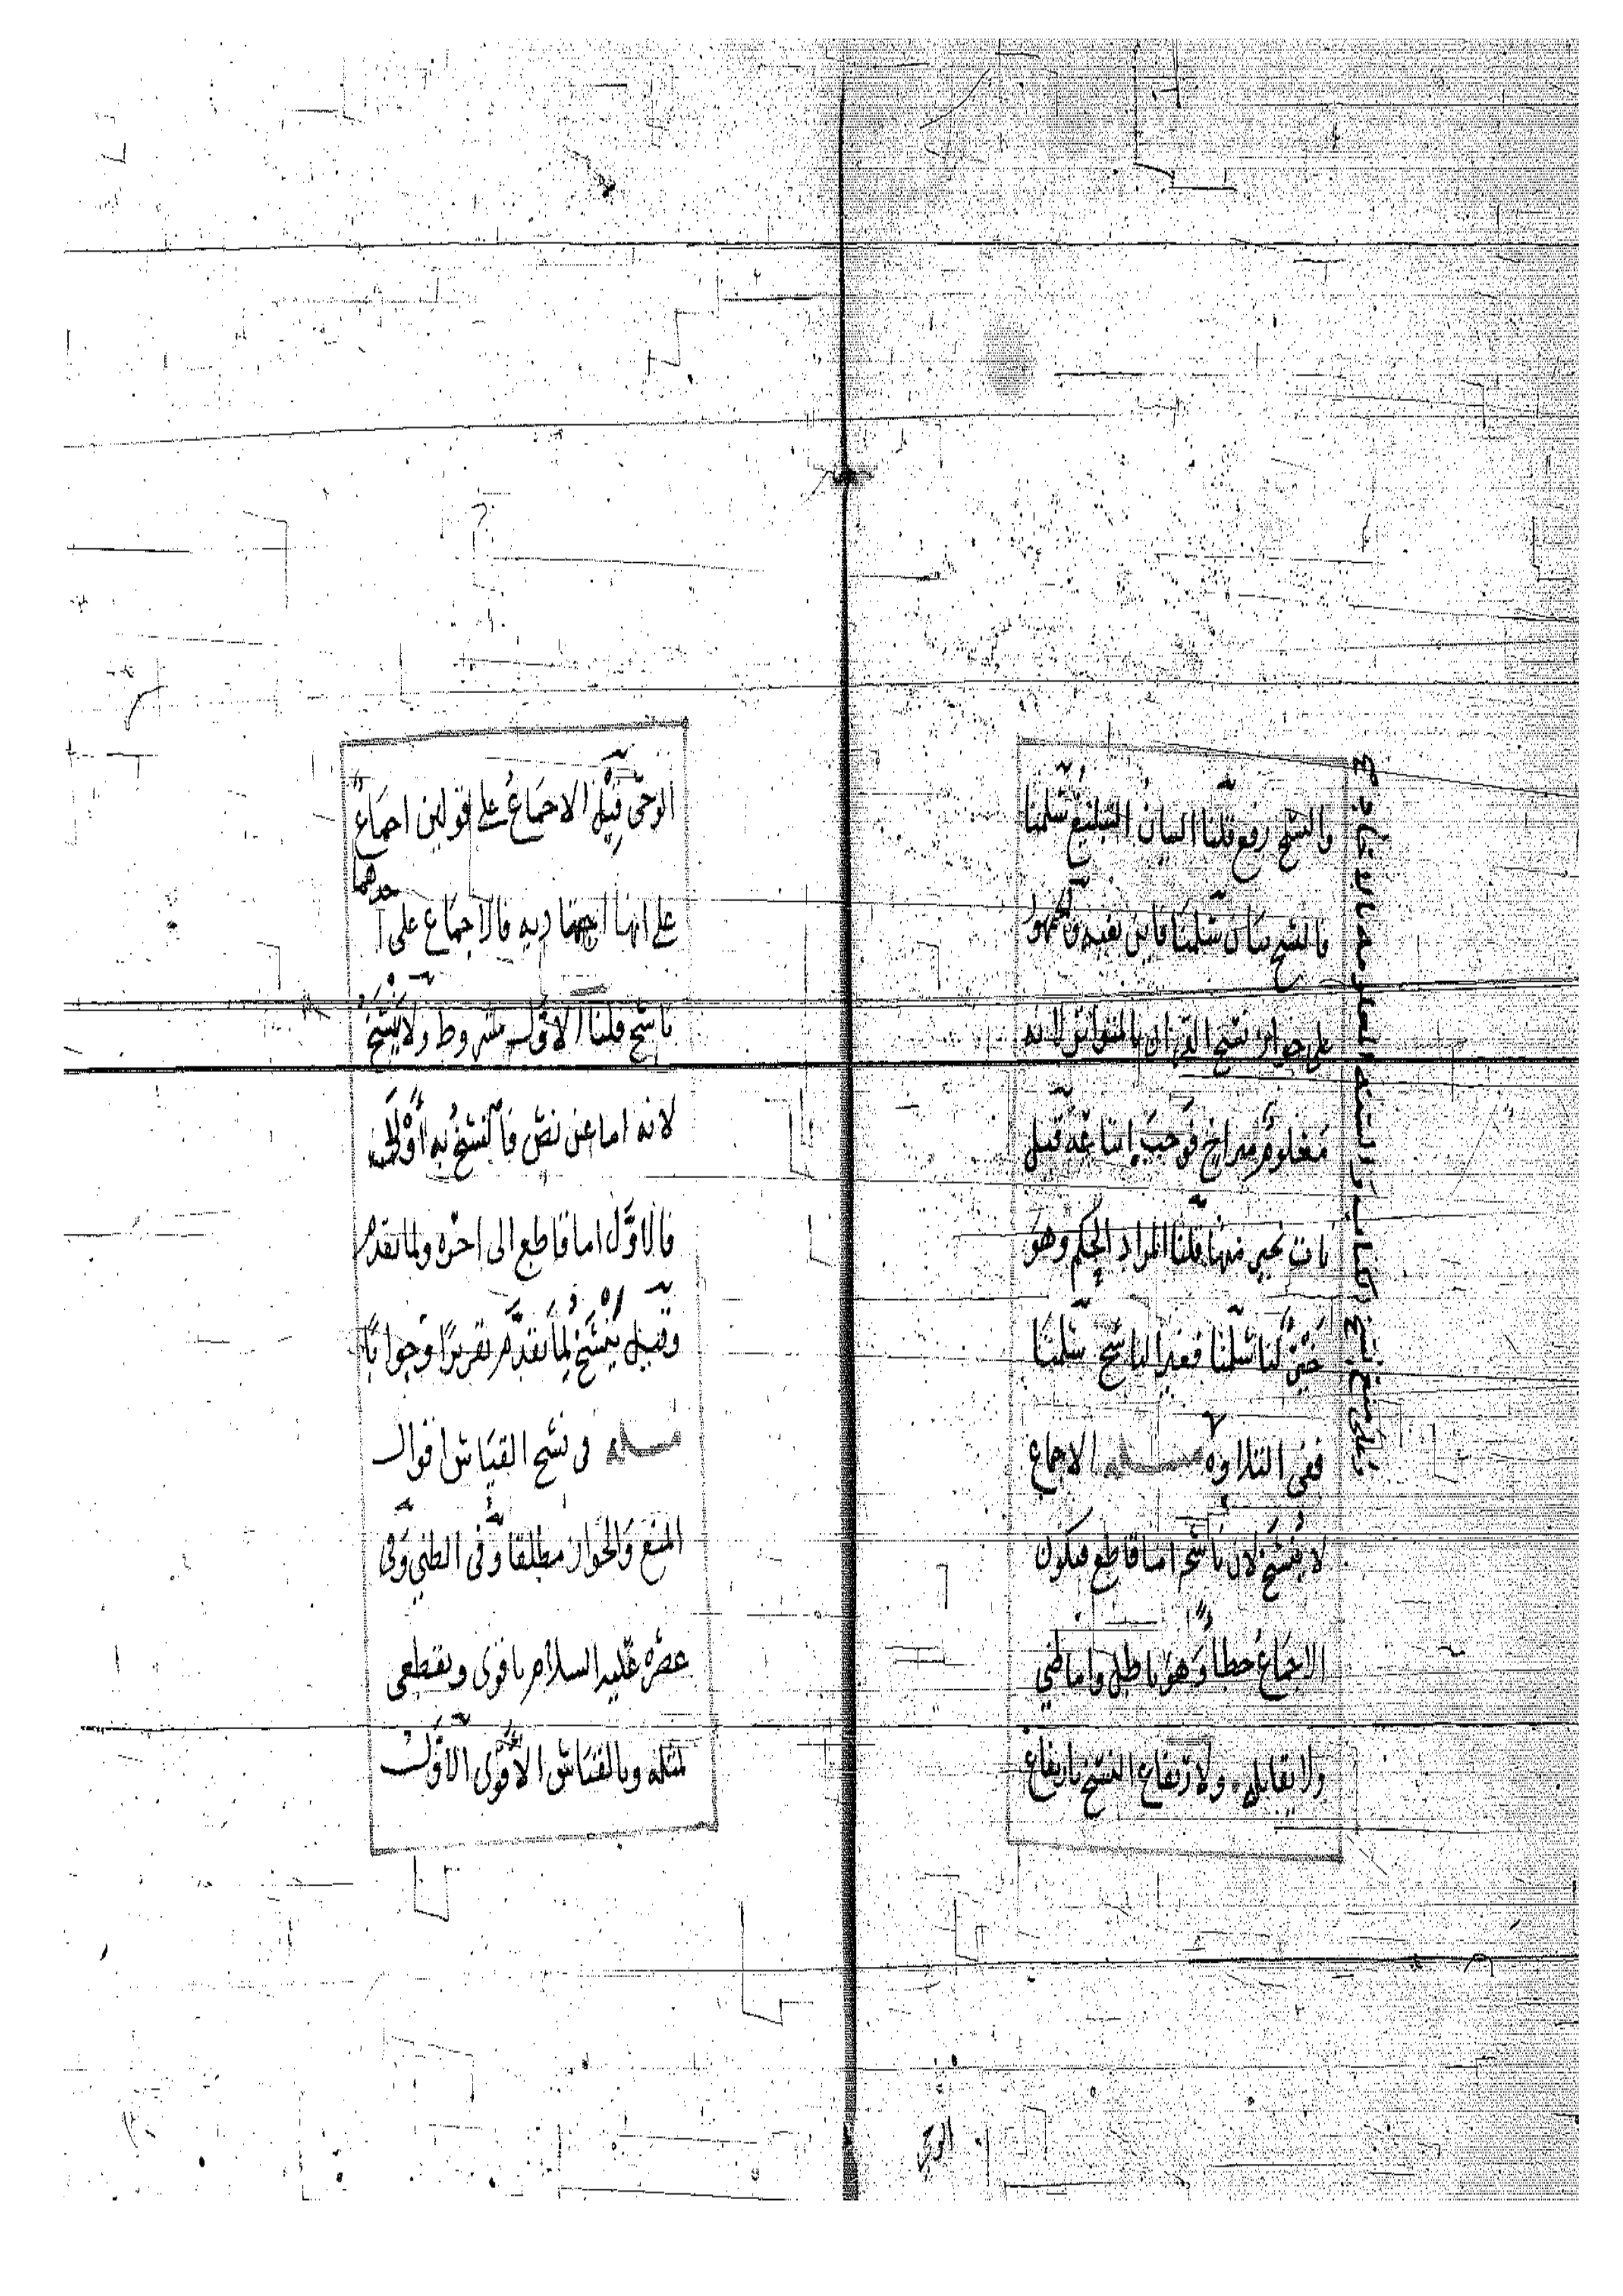 والنسخ رفع قلنا البيان التبليغ سلمنا
فالنسخ بيان سلمنا فاين نفيه والجمهور
على جواز نسخ القران بالمتواتر لانه
معلوم متراخ فوجب اتباعه قيل
نات بخير منها قلنا المراد الحكم وهو
خير لنا سلمنا فغير الناسخ سلمنا
ففي التلاوة مسئله الاجماع
لا ينسخ لان ناسخه اما قاطع فيكون
الاجماع خطأ وهو باطل واما ظني
ولا يقابله ولارتفاع النسخ بارتفاع
الوحي
الوحي قيل الاجماع على قولين اجماع
على انها اجتهادية فالاجماع على احدهما
ناسخ قلنا الاول مشروط ولا يُنسخ
لانه اما عن نص فالنسخ به أَوْلى
فالاول اما قاطع الى اخره ولما تقدم
وقيل يُنسخ لما تقدم تقريرًا وجوابًا
مسئله في نسخ القياس اقوال
المنع والجواز مطلقا وفي الظني وفي
عصره عليه السلام باقوى وبقطعي
لمثله وبالقياس الاقوى الاول